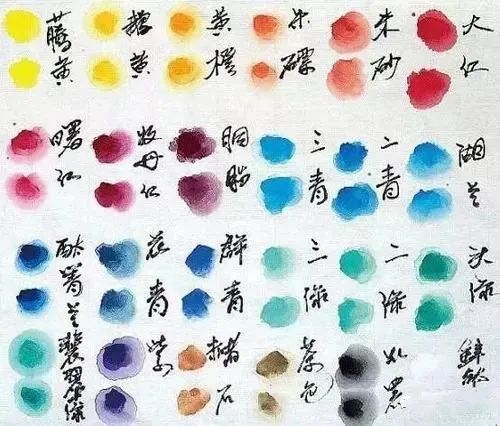 藤黄
橙黄
黄橙
朱磦
朱砂
大红
曙红
牧丹红
胭脂
三青
二青
湖兰
酞菁兰
花青
群青
三绿
二绿
头绿
翡翠绿
紫
赭石
茶色
墨